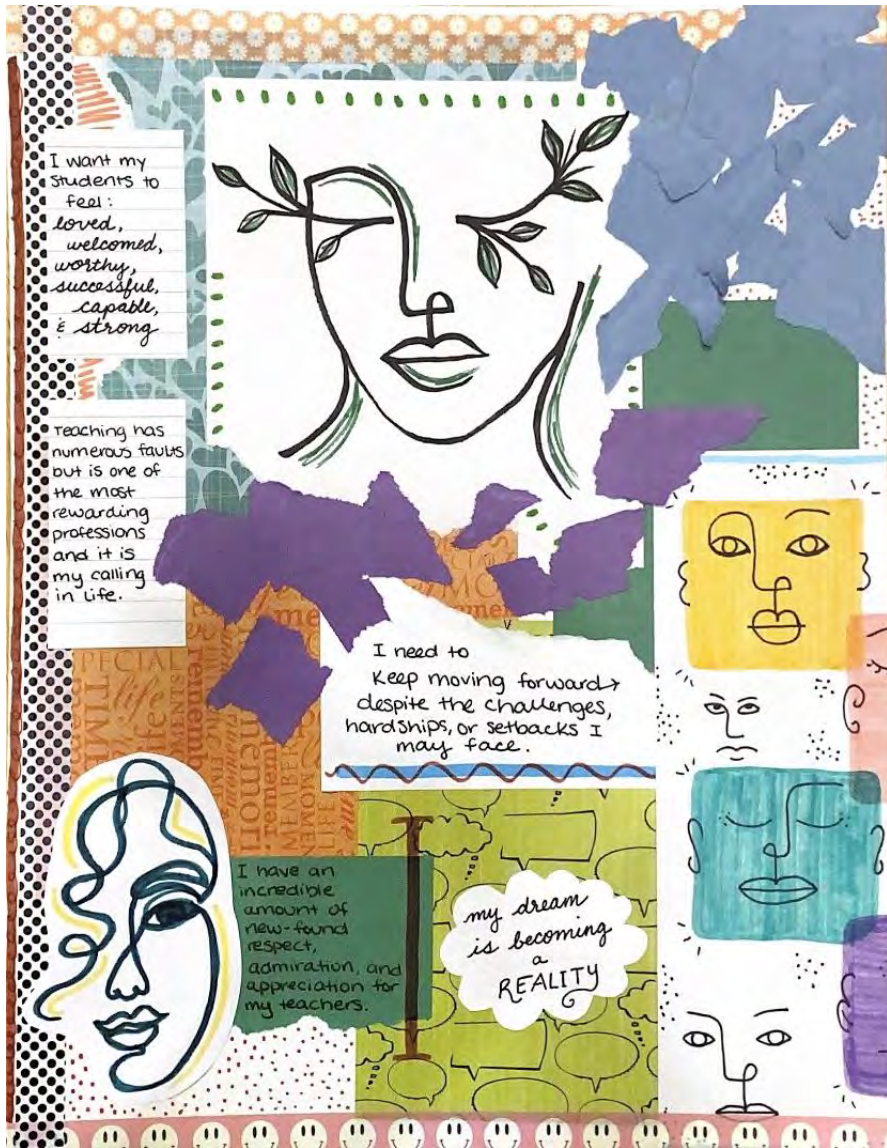 I want my
students to
feel:
loved,
welcomed,
worthy,
successful,
capable,
& strong
Teaching has
numerous faults
but is one of
the most
rewarding
professions
and it is
my calling
in life.
I need to
Keep moving forward→
despite the challenges,
hardships, or setbacks I
may face.
SPECIAL
life
TIME
remember
MEMBER
MOMEN
LIFE
me
MO
I have an
incredible
amount of
new-found
respect,
admiration, and
appreciation for
my teachers.
my dream
is becoming
a
REALITY